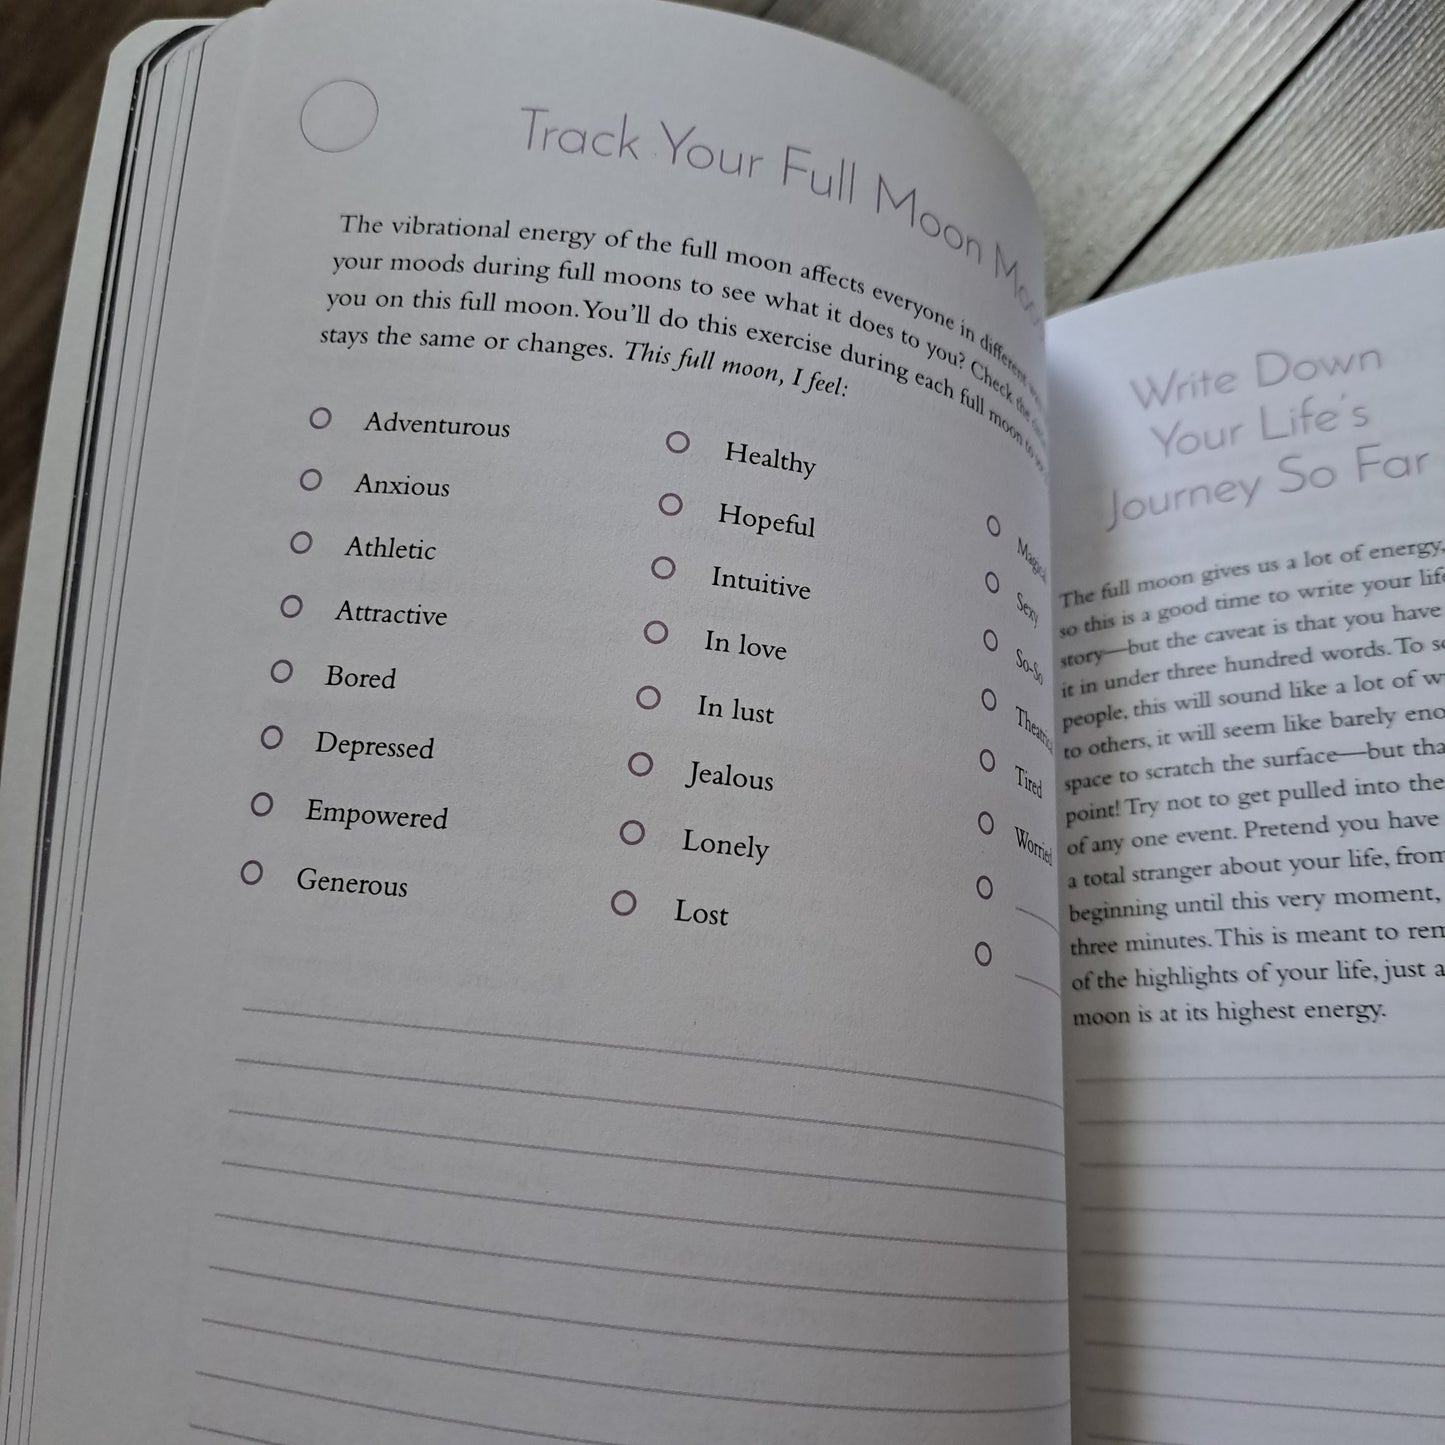 Track Your Full Moon
The vibrational energy of the full moon affects everyone in different
your moods during full moons to see what it does to you? Check the
you on this full moon. You'll do this exercise during each full moon to
stays the same or changes. This full moon, I feel:
Adventurous
Anxious
Athletic
Attractive
Bored
Depressed
Empowered
Generous
Healthy
Hopeful
Intuitive
In love
In lust
Jealous
Lonely
Lost
Magical
Sexy
So-So
Theatrical
Tired
Worried
Write Down
Your Life's
Journey So Far
The full moon gives us a lot of energy,
so this is a good time to write your life
story—but the caveat is that you have
it in under three hundred words. To
people, this will sound like a lot of
to others, it will seem like barely
space to scratch the surface—but
point! Try not to get pulled into the
of any one event. Pretend you have
a total stranger about your life, from
beginning until this very moment,
three minutes. This is meant to
of the highlights of your life, just
moon is at its highest energy.